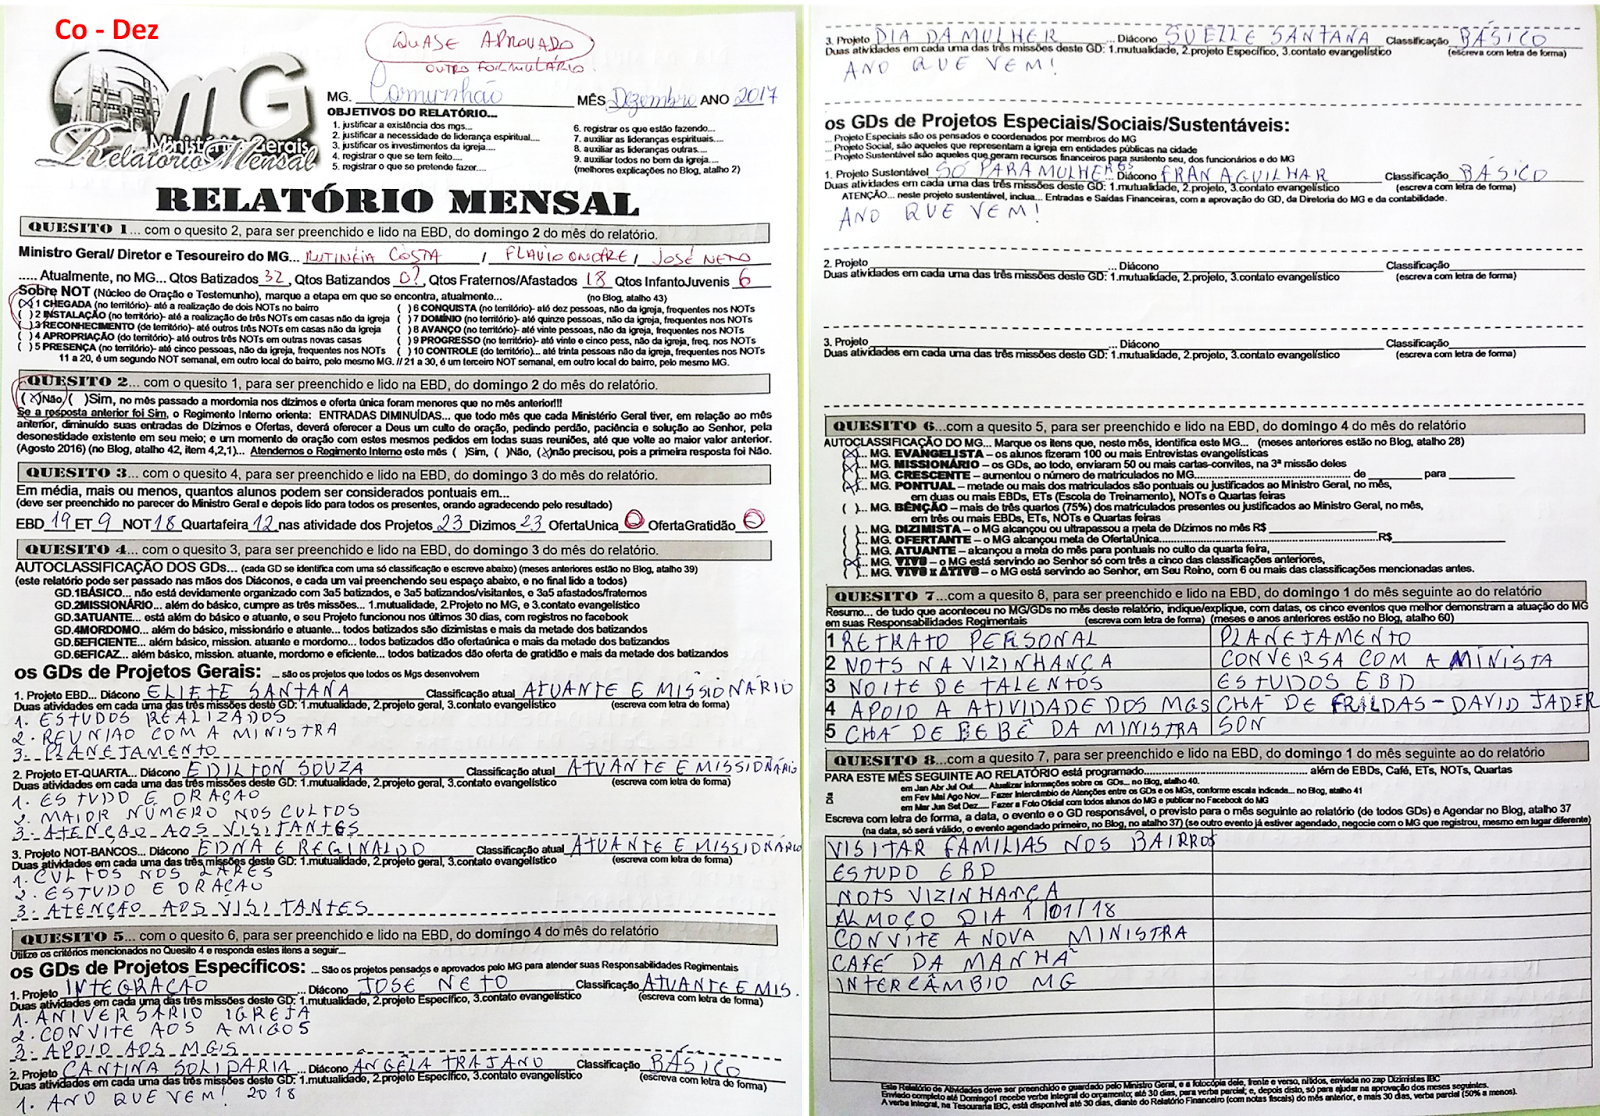 Co - Dez
QUASE APROVADO
OUTRO FORMULÁRIO
mG
Ministérios Gerais
Relatório Mensal
MG. Comunhão MÊS Dezembro ANO 2017
OBJETIVOS DO RELATÓRIO...
1. justificar a existência dos mgs...
2. justificar a necessidade de liderança espiritual....
3. justificar os investimentos da igreja....
4. registrar o que se tem feito....
5. registrar o que se pretende fazer....
6. registrar os que estão fazendo...
7. auxiliar as lideranças espirituais...
8. auxiliar as lideranças outras...
9. auxiliar todos no bem da igreja....
(melhores explicações no Blog, atalho 2)
RELATÓRIO MENSAL
QUESITO 1... com o quesito 2, para ser preenchido e lido na EBD, do domingo 2 do mês do relatório.
Ministro Geral/ Diretor e Tesoureiro do MG... RUTINÉIA COSTA / FLAVIO ONOFRE / JOSÉ NETO
..... Atualmente, no MG... Qtos Batizados 32, Qtos Batizandos 0?, Qtos Fraternos/Afastados 18 Qtos InfantoJuvenis 6
Sobre NOT (Núcleo de Oração e Testemunho), marque a etapa em que se encontra, atualmente... (no Blog, atalho 43)
(X) 1 CHEGADA (no território)- até a realização de dois NOTs no bairro
( ) 2 INSTALAÇÃO (no território)- até a realização de três NOTs em casas não da igreja
( ) 3 RECONHECIMENTO (de território)- até outros três NOTs em casas não da igreja
( ) 4 APROPRIAÇÃO (do território)- até outros três NOTs em outras novas casas
( ) 5 PRESENÇA (no território)- até cinco pessoas, não da igreja, frequentes nos NOTs
( ) 6 CONQUISTA (no território)- até dez pessoas, não da igreja, frequentes nos NOTs
( ) 7 DOMÍNIO (no território)- até quinze pessoas, não da igreja, frequentes nos NOTs
( ) 8 AVANÇO (no território)- até vinte pessoas, não da igreja, frequentes nos NOTs
( ) 9 PROGRESSO (no território)- até vinte e cinco pess, não da igreja, freq. nos NOTs
( ) 10 CONTROLE (do território)... até trinta pessoas, não da igreja, frequentes nos NOTs
11 a 20, é um segundo NOT semanal, em outro local do bairro, pelo mesmo MG. // 21 a 30, é um terceiro NOT semanal, em outro local do bairro, pelo mesmo MG.
QUESITO 2... com o quesito 1, para ser preenchido e lido na EBD, do domingo 2 do mês do relatório.
(X)Não ( )Sim, no mês passado a mordomia nos dízimos e oferta única foram menores que no mês anterior!!!
Se a resposta anterior foi Sim, o Regimento Interno orienta: ENTRADAS DIMINUÍDAS... que todo mês que cada Ministério Geral tiver, em relação ao mês
anterior, diminuído suas entradas de Dízimos e Ofertas, deverá oferecer a Deus um culto de oração, pedindo perdão, paciência e solução ao Senhor, pela
desonestidade existente em seu meio; e um momento de oração com estes mesmos pedidos em todas suas reuniões, até que volte ao maior valor anterior.
(Agosto 2016) (no Blog, atalho 42, item 4,2,1)... Atendemos o Regimento Interno este mês ( )Sim, ( )Não, (X)não precisou, pois a primeira resposta foi Não.
QUESITO 3... com o quesito 4, para ser preenchido e lido na EBD, do domingo 3 do mês do relatório.
Em média, mais ou menos, quantos alunos podem ser considerados pontuais em...
(deve ser preenchido no parecer do Ministro Geral e depois lido para todos os presentes, orando agradecendo pelo resultado)
EBD 19 ET 9 NOT 18 Quartafeira 12 nas atividade dos Projetos 23 Dizimos 23 OfertaUnica 0 OfertaGratidão 0
QUESITO 4... com o quesito 3, para ser preenchido e lido na EBD, do domingo 3 do mês do relatório.
AUTOCLASSIFICAÇÃO DOS GDs... (cada GD se identifica com uma só classificação e escreve abaixo) (meses anteriores estão no Blog, atalho 39)
(este relatório pode ser passado nas mãos dos Diáconos, e cada um vai preenchendo seu espaço abaixo, e no final lido a todos)
GD.1BÁSICO... não está devidamente organizado com 3a5 batizados, e 3a5 batizandos/visitantes, e 3a5 afastados/fraternos
GD.2MISSIONÁRIO... além do básico, cumpre as três missões... 1.mutualidade, 2.Projeto no MG, e 3.contato evangelístico
GD.3ATUANTE... está além do básico e atuante, e seu Projeto funcionou nos últimos 30 dias, com registros no facebook
GD.4MORDOMO... além do básico, missionário e atuante... todos batizados são dizimistas e mais da metade dos batizandos
GD.5EFICIENTE... além básico, mission. atuante e mordomo... todos batizados dão ofertaúnica e mais da metade dos batizandos
GD.6EFICAZ... além básico, mission. atuante, mordomo e eficiente... todos batizados dão oferta de gratidão e mais da metade dos batizandos
os GDs de Projetos Gerais: ... são os projetos que todos os Mgs desenvolvem
1. Projeto EBD... Diácono ELIETE SANTANA Classificação atual ATUANTE E MISSIONÁRIO
Duas atividades em cada uma das três missões deste GD: 1.mutualidade, 2.projeto geral, 3.contato evangelístico (escreva com letra de forma)
1. ESTUDOS REALIZADOS
2. REUNIÃO COM A MINISTRA
3. PLANEJAMENTO
2. Projeto ET-QUARTA... Diácono EDILTON SOUZA Classificação atual ATUANTE E MISSIONÁRIO
Duas atividades em cada uma das três missões deste GD: 1.mutualidade, 2.projeto geral, 3.contato evangelístico (escreva com letra de forma)
1. ESTUDO E ORAÇÃO
2. MAIOR NÚMERO NOS CULTOS
3. ATENÇÃO AOS VISITANTES
3. Projeto NOT-BANCOS... Diácono EDNA E REGINALDO Classificação atual ATUANTE E MISSIONÁRIO
Duas atividades em cada uma das três missões deste GD: 1.mutualidade, 2.projeto geral, 3.contato evangelístico (escreva com letra de forma)
1. CULTOS NOS LARES
2. ESTUDO E ORAÇÃO
3. ATENÇÃO AOS VISITANTES
QUESITO 5... com o quesito 6, para ser preenchido e lido na EBD, do domingo 4 do mês do relatório
Utilize os critérios mencionados no Quesito 4 e responda estes itens a seguir...
os GDs de Projetos Específicos: ... São os projetos pensados e aprovados pelo MG para atender suas Responsabilidades Regimentais
1. Projeto INTEGRAÇÃO ...Diácono JOSE NETO Classificação ATUANTE E MIS.
Duas atividades em cada uma das três missões deste GD: 1.mutualidade, 2.projeto Específico, 3.contato evangelístico (escreva com letra de forma)
1. ANIVERSÁRIO IGREJA
2. CONVITE AOS AMIGOS
3. APOIO AOS MGS
2. Projeto CANTINA SOLIDARIA ...Diácono ÂNGELA TRAJANO Classificação BÁSICO
Duas atividades em cada uma das três missões deste GD: 1.mutualidade, 2.projeto Específico, 3.contato evangelístico (escreva com letra de forma)
1. ANO QUE VEM! 2018
3. Projeto DIA DA MULHER ... Diácono SUELLE SANTANA Classificação BÁSICO
Duas atividades em cada uma das três missões deste GD: 1.mutualidade, 2.projeto Específico, 3.contato evangelístico (escreva com letra de forma)
ANO QUE VEM!
os GDs de Projetos Especiais/Sociais/Sustentáveis:
... Projeto Especiais são os pensados e coordenados por membros do MG
... Projeto Social, são aqueles que representam a igreja em entidades públicas na cidade
... Projeto Sustentável são aqueles que geram recursos financeiros para sustento seu, dos funcionários e do MG
1. Projeto Sustentável SÓ PARA MULHERES Diácono FRAN AGUILHAR Classificação BÁSICO
Duas atividades em cada uma das três missões deste GD: 1.mutualidade, 2.projeto, 3.contato evangelístico (escreva com letra de forma)
ATENÇÃO... neste projeto sustentável, inclua... Entradas e Saídas Financeiras, com a aprovação do GD, da Diretoria do MG e da contabilidade.
ANO QUE VEM!
2. Projeto Diácono Classificação
Duas atividades em cada uma das três missões deste GD: 1.mutualidade, 2.projeto, 3.contato evangelístico (escreva com letra de forma)
3. Projeto Diácono Classificação
Duas atividades em cada uma das três missões deste GD: 1.mutualidade, 2.projeto, 3.contato evangelístico (escreva com letra de forma)
QUESITO 6... com a quesito 5, para ser preenchido e lido na EBD, do domingo 4 do mês do relatório
AUTOCLASSIFICAÇÃO DO MG... Marque os itens que, neste mês, identifica este MG... (meses anteriores estão no Blog, atalho 28)
(X)... MG. EVANGELISTA – os alunos fizeram 100 ou mais Entrevistas evangelísticas
(X)... MG. MISSIONÁRIO – os GDs, ao todo, enviaram 50 ou mais cartas-convites, na 3ª missão deles
( )... MG. CRESCENTE – aumentou o número de matriculados no MG... de para
(X)... MG. PONTUAL – metade ou mais dos matriculados são pontuais ou justificados ao Ministro Geral, no mês,
em duas ou mais EBDs, ETs (Escola de Treinamento), NOTs e Quartas feiras
( )... MG. BÊNÇÃO – mais de três quartos (75%) dos matriculados presentes ou justificados ao Ministro Geral, no mês,
em três ou mais EBDs, ETs, NOTs e Quartas feiras
( )... MG. DIZIMISTA – o MG alcançou ou ultrapassou a meta de Dízimos no mês R$
( )... MG. OFERTANTE – o MG alcançou meta de OfertaUnica... R$
( )... MG. ATUANTE – alcançou a meta do mês para pontuais no culto da quarta feira,
(X)... MG. VIVO – o MG está servindo ao Senhor só com três a cinco das classificações anteriores,
( )... MG. VIVO x ATIVO – o MG está servindo ao Senhor, em Seu Reino, com 6 ou mais das classificações mencionadas antes.
QUESITO 7...com a quesito 8, para ser preenchido e lido na EBD, do domingo 1 do mês seguinte ao do relatório
Resumo... de tudo que aconteceu no MG/GDs no mês deste relatório, indique/explique, com datas, os cinco eventos que melhor demonstram a atuação do MG
em suas Responsabilidades Regimentais (escreva com letra de forma) (meses e anos anteriores estão no Blog, atalho 60)
1 RETRATO PERSONAL PLANEJAMENTO
2 NOTS NA VIZINHANÇA CONVERSA COM A MINISTA
3 NOITE DE TALENTOS ESTUDOS EBD
4 APOIO A ATIVIDADE DOS MGS CHÁ DE FRALDAS - DAVID JADER
5 CHÁ DE BEBÊ DA MINISTRA SON
QUESITO 8...com a quesito 7, para ser preenchido e lido na EBD, do domingo 1 do mês seguinte ao do relatório
PARA ESTE MÊS SEGUINTE AO RELATÓRIO está programado... além de EBDs, Café, ETs, NOTs, Quartas
Dia
em Jan Abr Jul Out..... Atualizar informações sobre os GDs... no Blog, atalho 40.
em Fev Mai Ago Nov.... Fazer Intercâmbio de Atenções entre os GDs e os MGs, conforme escala indicada... no Blog, atalho 41
em Mar Jun Set Dez.... Fazer a Foto Oficial com todos alunos do MG e publicar no Facebook do MG
Escreva com letra de forma, a data, o evento e o GD responsável, o previsto para o mês seguinte ao relatório (de todos GDs) e Agendar no Blog, atalho 37
(na data, só será válido, o evento agendado primeiro, no Blog, no atalho 37) (se outro evento já estiver agendado, negocie com o MG que registrou, mesmo em lugar diferente)
VISITAR FAMILIAS NOS BAIRROS
ESTUDO EBD
NOTS VIZINHANÇA
ALMOÇO DIA 1/01/18
CONVITE A NOVA MINISTRA
CAFÉ DA MANHÃ
INTERCÂMBIO MG
Este Relatório de Atividades deve ser preenchido e guardado pelo Ministro Geral, e a fotocópia dele, frente e verso, nítidos, enviada no zap Dizimistas IBC
Enviado completo até Domingo1 recebe verba integral do orçamento; até 30 dias, para verba parcial; e, depois disto, só para ajudar na aprovação dos meses seguintes.
A verba integral, na Tesouraria IBC, está disponível até 30 dias, diante do Relatório Financeiro (com notas fiscais) do mês anterior, e mais 30 dias, verba parcial (50% a menos).